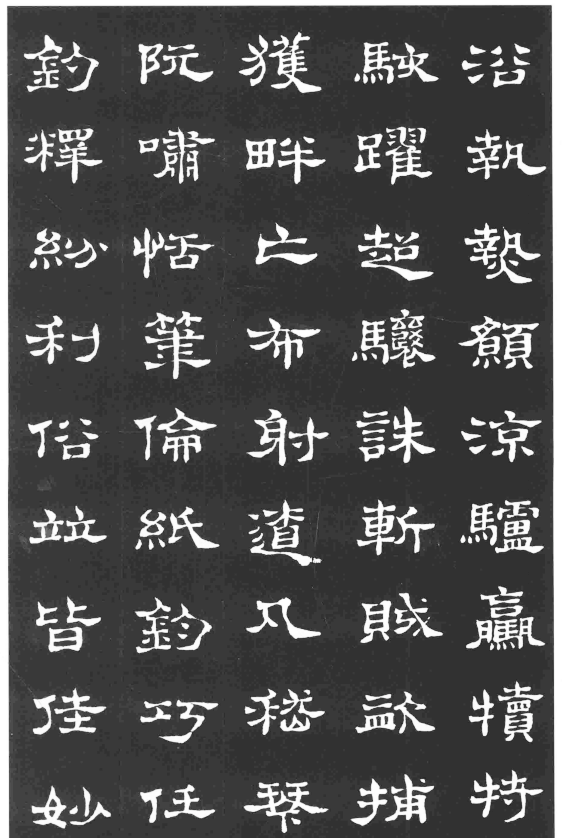 浴執熱願涼驢驘犢特
駭躍超驤誅斬賊盜捕
獲畔亡布射遼丸嵇琴
阮嘯恬筆倫紙鈞巧任
釣釋紛利俗竝皆佳妙